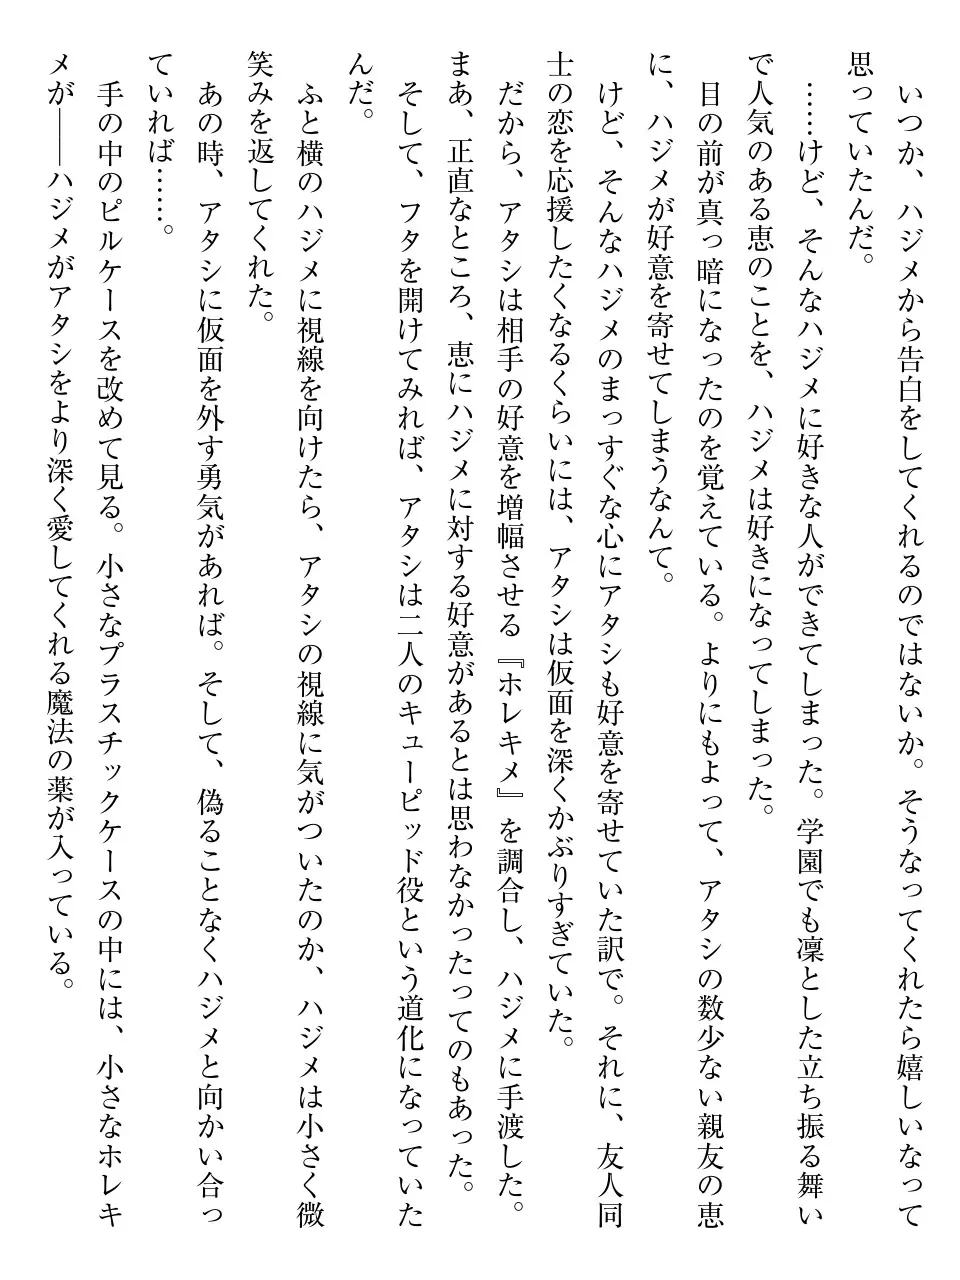 いつか、ハジメから告白をしてくれるのではないか。そうなってくれたら嬉しいなって
思っていたんだ。
　……けど、そんなハジメに好きな人ができてしまった。学園でも凛とした立ち振る舞い
で人気のある恵のことを、ハジメは好きになってしまった。
　目の前が真っ暗になったのを覚えている。よりにもよって、アタシの数少ない親友の恵
に、ハジメが好意を寄せてしまうなんて。
　けど、そんなハジメのまっすぐな心にアタシも好意を寄せていた訳で。それに、友人同
士の恋を応援したくなるくらいには、アタシは仮面を深くかぶりすぎていた。
　だから、アタシは相手の好意を増幅させる『ホレキメ』を調合し、ハジメに手渡した。
まあ、正直なところ、恵にハジメに対する好意があるとは思わなかったってのもあった。
　そして、フタを開けてみれば、アタシは二人のキューピッド役という道化になっていた
んだ。
　ふと横のハジメに視線を向けたら、アタシの視線に気がついたのか、ハジメは小さく微
笑みを返してくれた。
　あの時、アタシに仮面を外す勇気があれば。そして、偽ることなくハジメと向かい合っ
ていれば……。
　手の中のピルケースを改めて見る。小さなプラスチックケースの中には、小さなホレキ
メが――ハジメがアタシをより深く愛してくれる魔法の薬が入っている。